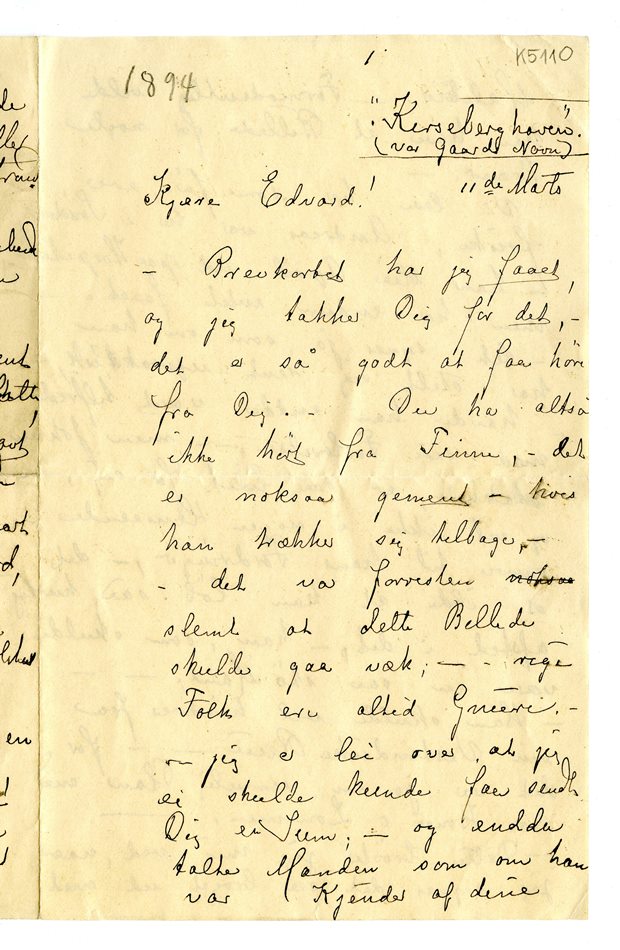 de
1
K5110
1894
"Kerseberghaven".
(var Gaards Navn)
Kjære Edvard! 11 de Marts
– Brevkortet har jeg faaet,
og jeg takker Dig for det, –
det er så godt at faa høre
fra Dig. – Du ha altså
ikke hørt fra Finne, – det
er noksaa gement – hvis
han trække sig tilbage, –
– det va forresten noksaa
slemt at dette Bellede
skulde gaa væk; – – rige
Folk ere altid Gniere. –
– jeg er lei over at jeg
ei skulde kunde faa sendt
Dig en Sum; – og endda
talte Manden som om han
var Kjender af dine
en